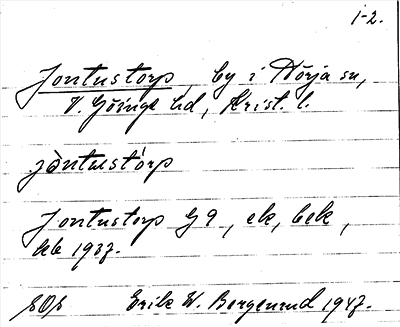 1-2.
Jontustorp, by i Nörja sn,
V. Göinge hd, Krist. l.
jòntustó̀rp
Jontustorp G 9, ek, bek,
Jdb 1937.
SOS Erik W. Bergenrud 1947.